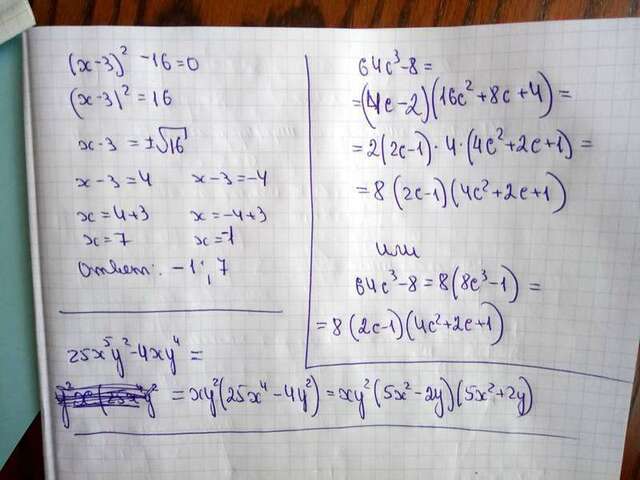 (x-3)² -16=0
(x-3)² = 16
x-3 = ±√16
x-3=4 x-3=-4
x=4+3 x=-4+3
x=7 x=-1
Ответ: -1; 7
64c³-8=
=(4c-2)(16c²+8c+4)=
=2(2c-1)·4·(4c²+2c+1)=
=8(2c-1)(4c²+2c+1)
или
64c³-8=8(8c³-1)=
=8(2c-1)(4c²+2c+1)
25x⁵y²-4xy⁴=
=xy²(25x⁴-4y²)=xy²(5x²-2y)(5x²+2y)